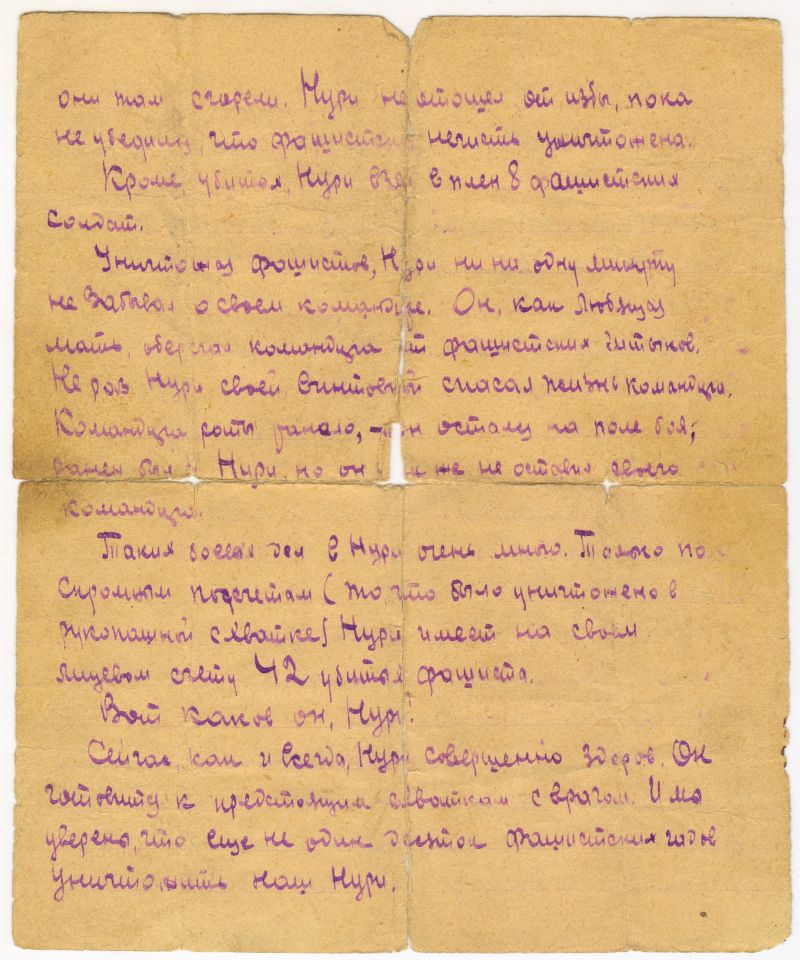 они там сгорели. Нури не отошел от избы, пока
не убедился, что фашистская нечисть уничтожена.
Кроме убитых, Нури взял в плен 8 фашистских
солдат.
Уничтожая фашистов, Нури ни на одну минуту
не забывал о своем командире. Он, как любящая
мать, оберегал командира от фашистских штыков.
Не раз Нури своей винтовкой спасал жизнь командира.
Командира роты ранило, - он остался на поле боя;
ранен был и Нури, но он же не оставил своего
командира.
Таких боевых дел в Нури очень много. Только по
скромным подсчетам (то, что было уничтожено в
рукопашной схватке) Нури имеет на своем
лицевом счету 42 убитых фашиста.
Вот каков он, Нури!
Сейчас, как и всегда, Нури совершенно здоров. Он
готовится к предстоящим схваткам с врагом. И мы
уверены, что еще не один десяток фашистских гадов
уничтожить наш Нури.